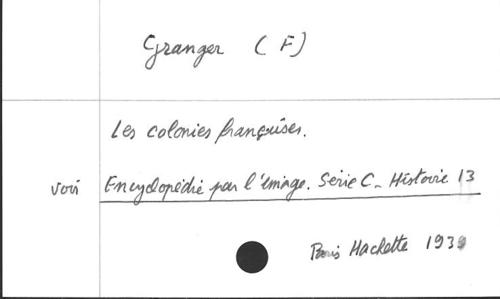 Granger (F)
Les colonies françaises.
voir Encyclopédie par l'image. Série C - Histoire 13
Paris Hachette